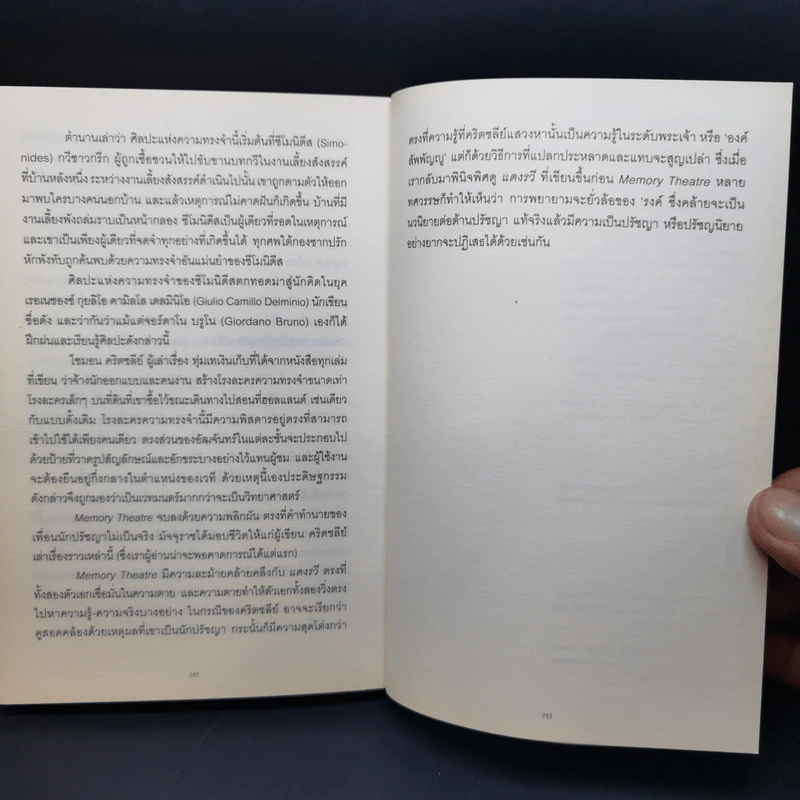 ตำนานเล่าว่า ศิลปะแห่งความทรงจำนี้เริ่มต้นที่ซีโมนิดีส (Simo-
nides) กวีชาวกรีก ผู้ถูกเชื้อชวนให้ไปขับขานบทกวีในงานเลี้ยงสังสรรค์
ที่บ้านหลังหนึ่ง ระหว่างงานเลี้ยงสังสรรค์ดำเนินไปนั้น เขาถูกตามตัวให้ออก
มาพบใครบางคนนอกบ้าน และแล้วเหตุการณ์ไม่คาดฝันก็เกิดขึ้น บ้านที่มี
งานเลี้ยงพังถล่มราบเป็นหน้ากลอง ซีโมนิดีสเป็นผู้เดียวที่รอดในเหตุการณ์
และเขาเป็นเพียงผู้เดียวที่จดจำทุกอย่างที่เกิดขึ้นได้ ทุกศพใต้กองซากปรัก
หักพังทับถูกค้นพบด้วยความทรงจำอันแม่นยำของซีโมนิดีส
ศิลปะแห่งความทรงจำของซีโมนิดีสตกทอดมาสู่นักคิดในยุค
เรอเนซองซ์ กุยลิโอ คามิลโล เดลมินิโอ (Giulio Camillo Delminio) นักเขียน
ชื่อดัง และว่ากันว่าแม้แต่จอร์ดาโน บรูโน (Giordano Bruno) เองก็ได้
ฝึกฝนและเรียนรู้ศิลปะดังกล่าวนี้
ไซมอน คริตชลีย์ ผู้เล่าเรื่อง ทุ่มเทเงินเก็บที่ได้จากหนังสือทุกเล่ม
ที่เขียน ว่าจ้างนักออกแบบและคนงาน สร้างโรงละครความทรงจำขนาดเท่า
โรงละครเล็กๆ บนที่ดินที่เขาซื้อไว้ขณะเดินทางไปสอนที่ฮอลแลนด์ เช่นเดียว
กับแบบดั้งเดิม โรงละครความทรงจำนี้มีความพิสดารอยู่ตรงที่สามารถ
เข้าไปใช้ได้เพียงคนเดียว ตรงส่วนของอัฒจันทร์ในแต่ละชั้นจะประกอบไป
ด้วยป้ายที่วาดรูปสัญลักษณ์และอักขระบางอย่างไว้แทนผู้ชม และผู้ใช้งาน
จะต้องยืนอยู่กึ่งกลางในตำแหน่งของเวที ด้วยเหตุนี้เองประดิษฐกรรม
ดังกล่าวจึงถูกมองว่าเป็นเวทมนตร์มากกว่าจะเป็นวิทยาศาสตร์
Memory Theatre จบลงด้วยความพลิกผัน ตรงที่คำทำนายของ
เพื่อนนักปรัชญาไม่เป็นจริง มัจจุราชได้มอบชีวิตให้แก่ผู้เขียน คริตชลีย์
เล่าเรื่องราวเหล่านี้ (ซึ่งเราผู้อ่านน่าจะพอคาดการณ์ได้แต่แรก)
Memory Theatre มีความละม้ายคล้ายคลึงกับ แดงรวี ตรงที่
ทั้งสองตัวเอกเชื่อมั่นในความตาย และความตายทำให้ตัวเอกทั้งสองวิ่งตรง
ไปหาความรู้-ความจริงบางอย่าง ในกรณีของคริตชลีย์ อาจจะเรียกว่า
ดูสอดคล้องด้วยเหตุผลที่เขาเป็นนักปรัชญา กระนั้นก็มีความสุดโต่งกว่า
242
ตรงที่ความรู้ที่คริตชลีย์แสวงหานั้นเป็นความรู้ในระดับพระเจ้า หรือ 'องค์
สัพพัญญู' แต่ก็ด้วยวิธีการที่แปลกประหลาดและแทบจะสูญเปล่า ซึ่งเมื่อ
เรากลับมาพินิจพิศดู แดงรวี ที่เขียนขึ้นก่อน Memory Theatre หลาย
ทศวรรษก็ทำให้เห็นว่า การพยายามจะยั่วล้อของ 'รงค์ ซึ่งคล้ายจะเป็น
นวนิยายต่อต้านปรัชญา แท้จริงแล้วมีความเป็นปรัชญา หรือปรัชญนิยาย
อย่างยากจะปฏิเสธได้ด้วยเช่นกัน
243